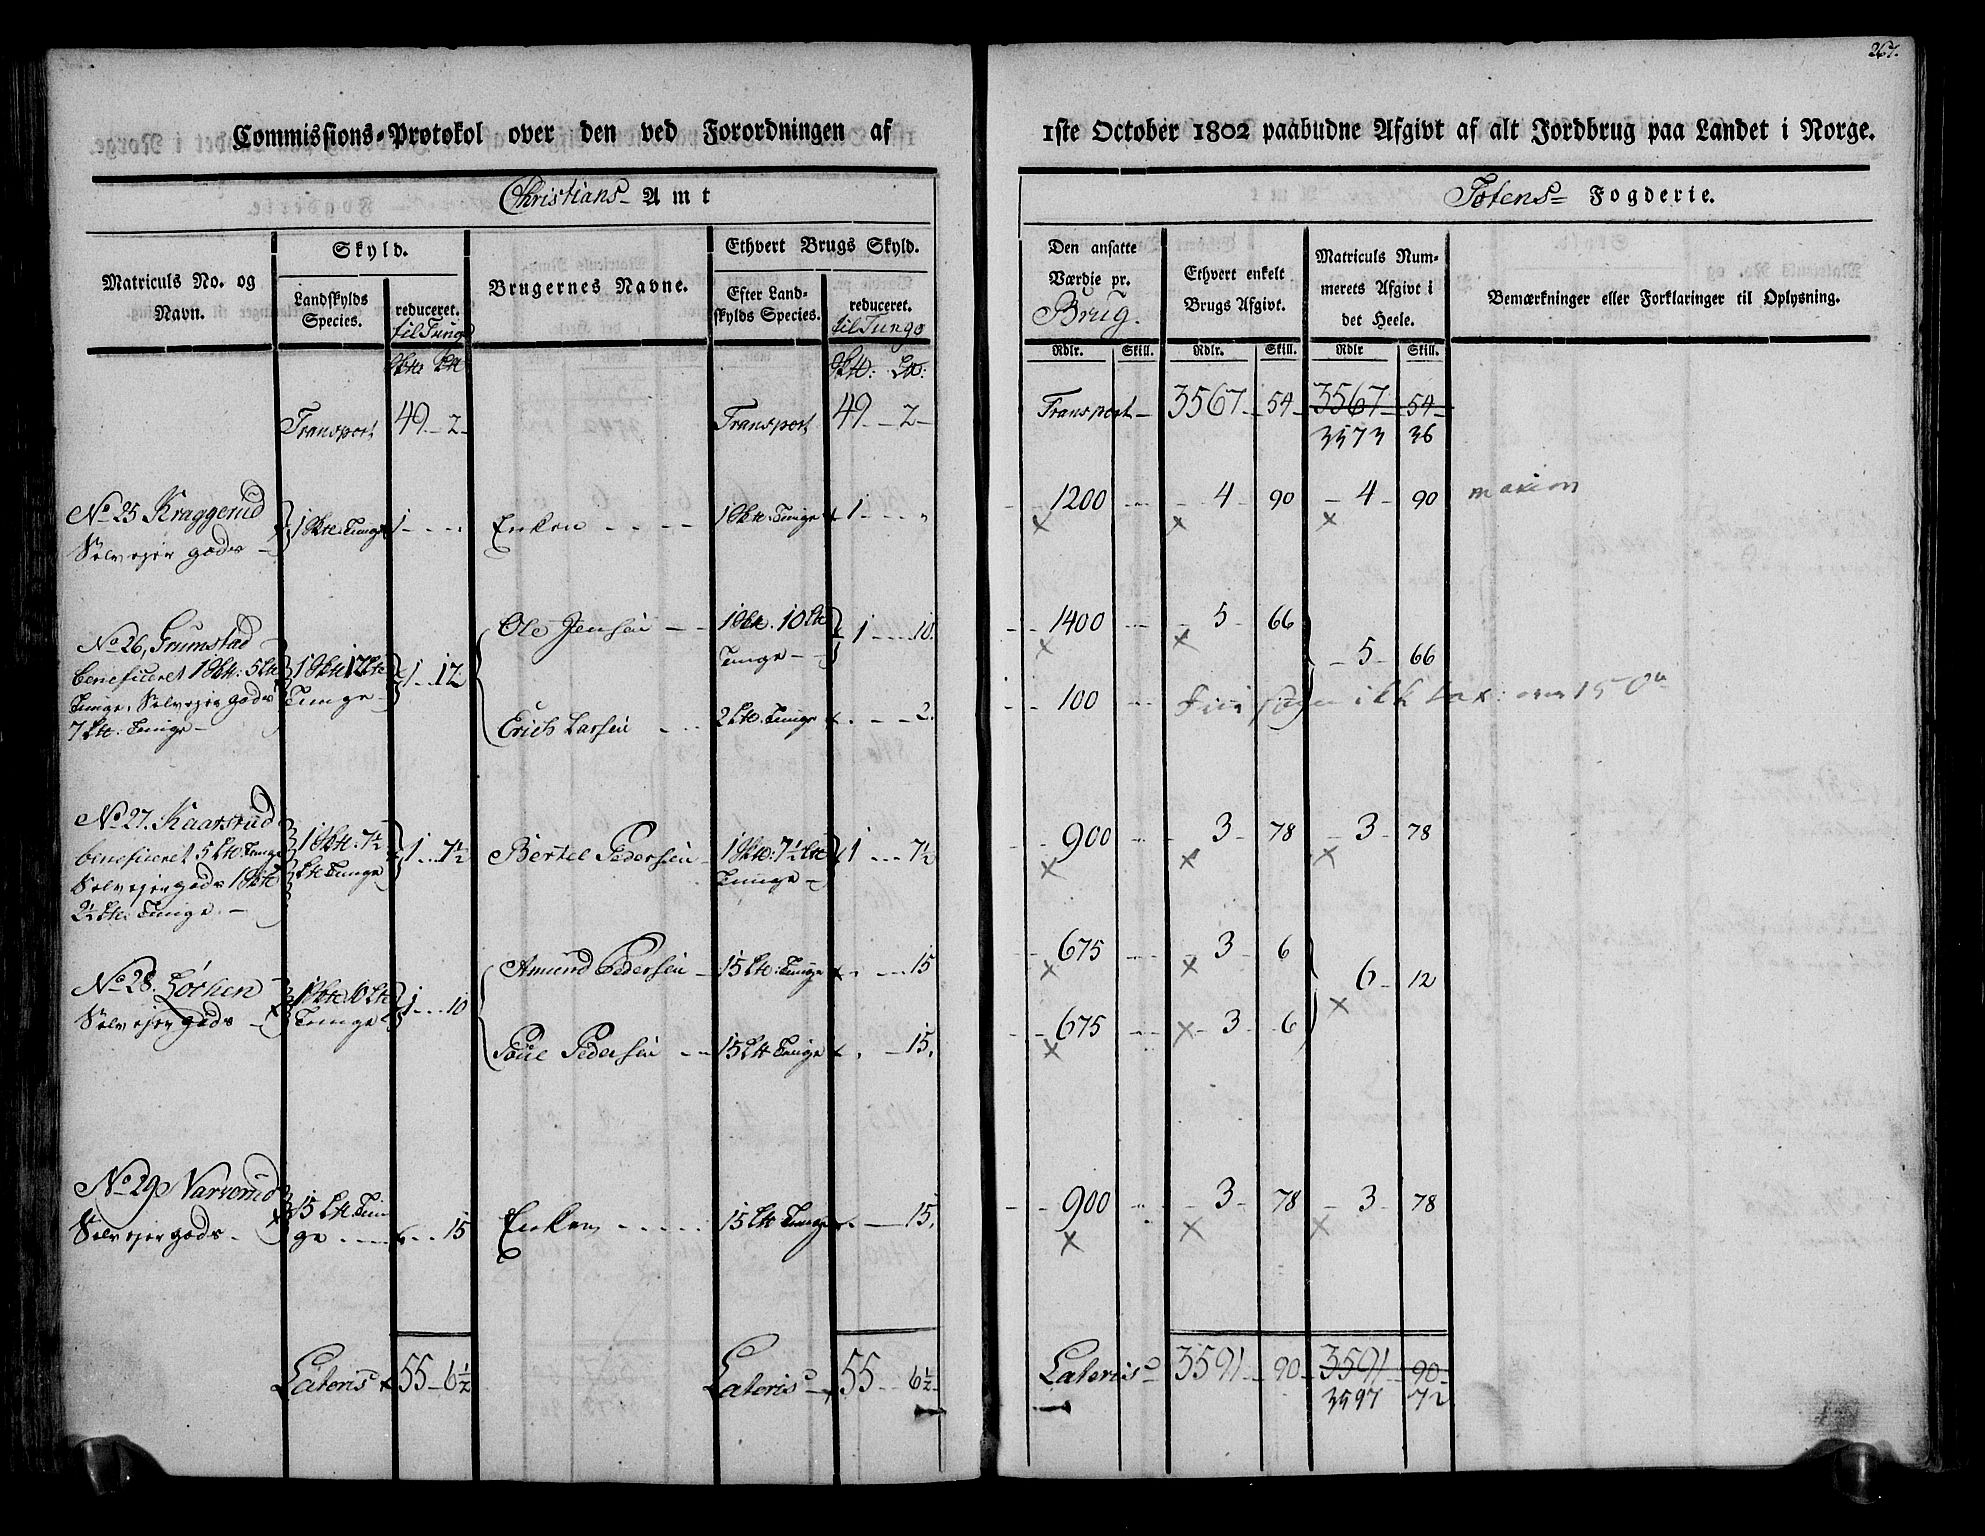 267.
Commissions-Protokol over den ved Forordningen af 1ste October 1802 paabudne Afgivt af alt Jordbrug paa Landet i Norge.
Christians- Amt
Totens- Fogderie.
Matriculs No. og Navn.
Skyld.
Landskylds Species.
reduceret. til Tunge
Brugernes Navne.
Ethvert Brugs Skyld.
Efter Landskylds Species.
reduceret. til Tunge
Den ansatte Værdie pr. Brug.
Ethvert enkelt Brugs Afgivt.
Matriculs Nummerets Afgivt i det Heele.
Bemærkninger eller Forklaringer til Oplysning.
Rdlr. Skill. Rdlr. Skill. Rdlr Skill.
Transport 49 - 2 - Transport 49 - 2 - Transport - 3567 - 54 - 3567 - 54 -
3573 36
No 25 Kraggerud 1 Tunge 1 - - - " Enken - - - - 1 Tunge 1 - - - " 1200 - 4 - 90 - 4 - 90
Selvejer gods
No 26, Grumstad
beneficeret 1 5
Tunge, Selvejer gods
7 Tunge -
1 12
Tunge -
1 - 12
Ole Jensen - - 1 10
Tunge - -
1 - - - 10. 1400 - 5 - 66
- 5 - 66
Erich Larsen - - - 2 Tunge - - - 2. 100 ikk over 150
No 27. Kaarstud
beneficeret 5 Tunge
Selvejer gods 1
2½ Tunge. -
1 7½
Tunge
1 - - 7½
Bertel Pedersen - 1 7½
Tunge -
1 - - - 7½ 900 - 3 - 78 - 3 - 78
No 28.
Selvejer gods -
1 10
Tunge
1 - - - 10
Amund Pedersen - 15 Tunge - - - 15 675 - 3 - 6
6 - 12
Poul Pedersen - - 15 Tunge - - 15. 675 - 3 - 6
No 29
Selvejer gods -
15 Tun
ge - - - -
- - - 15
Enken - - - - - 15 Tunge - - - 15. 900 - 3 - 78 - 3 - 78
Lateris 55 - 6½ Lateris 55 - 6½ Lateris 3591 - 90 - 3591 - 90 -
3597 72